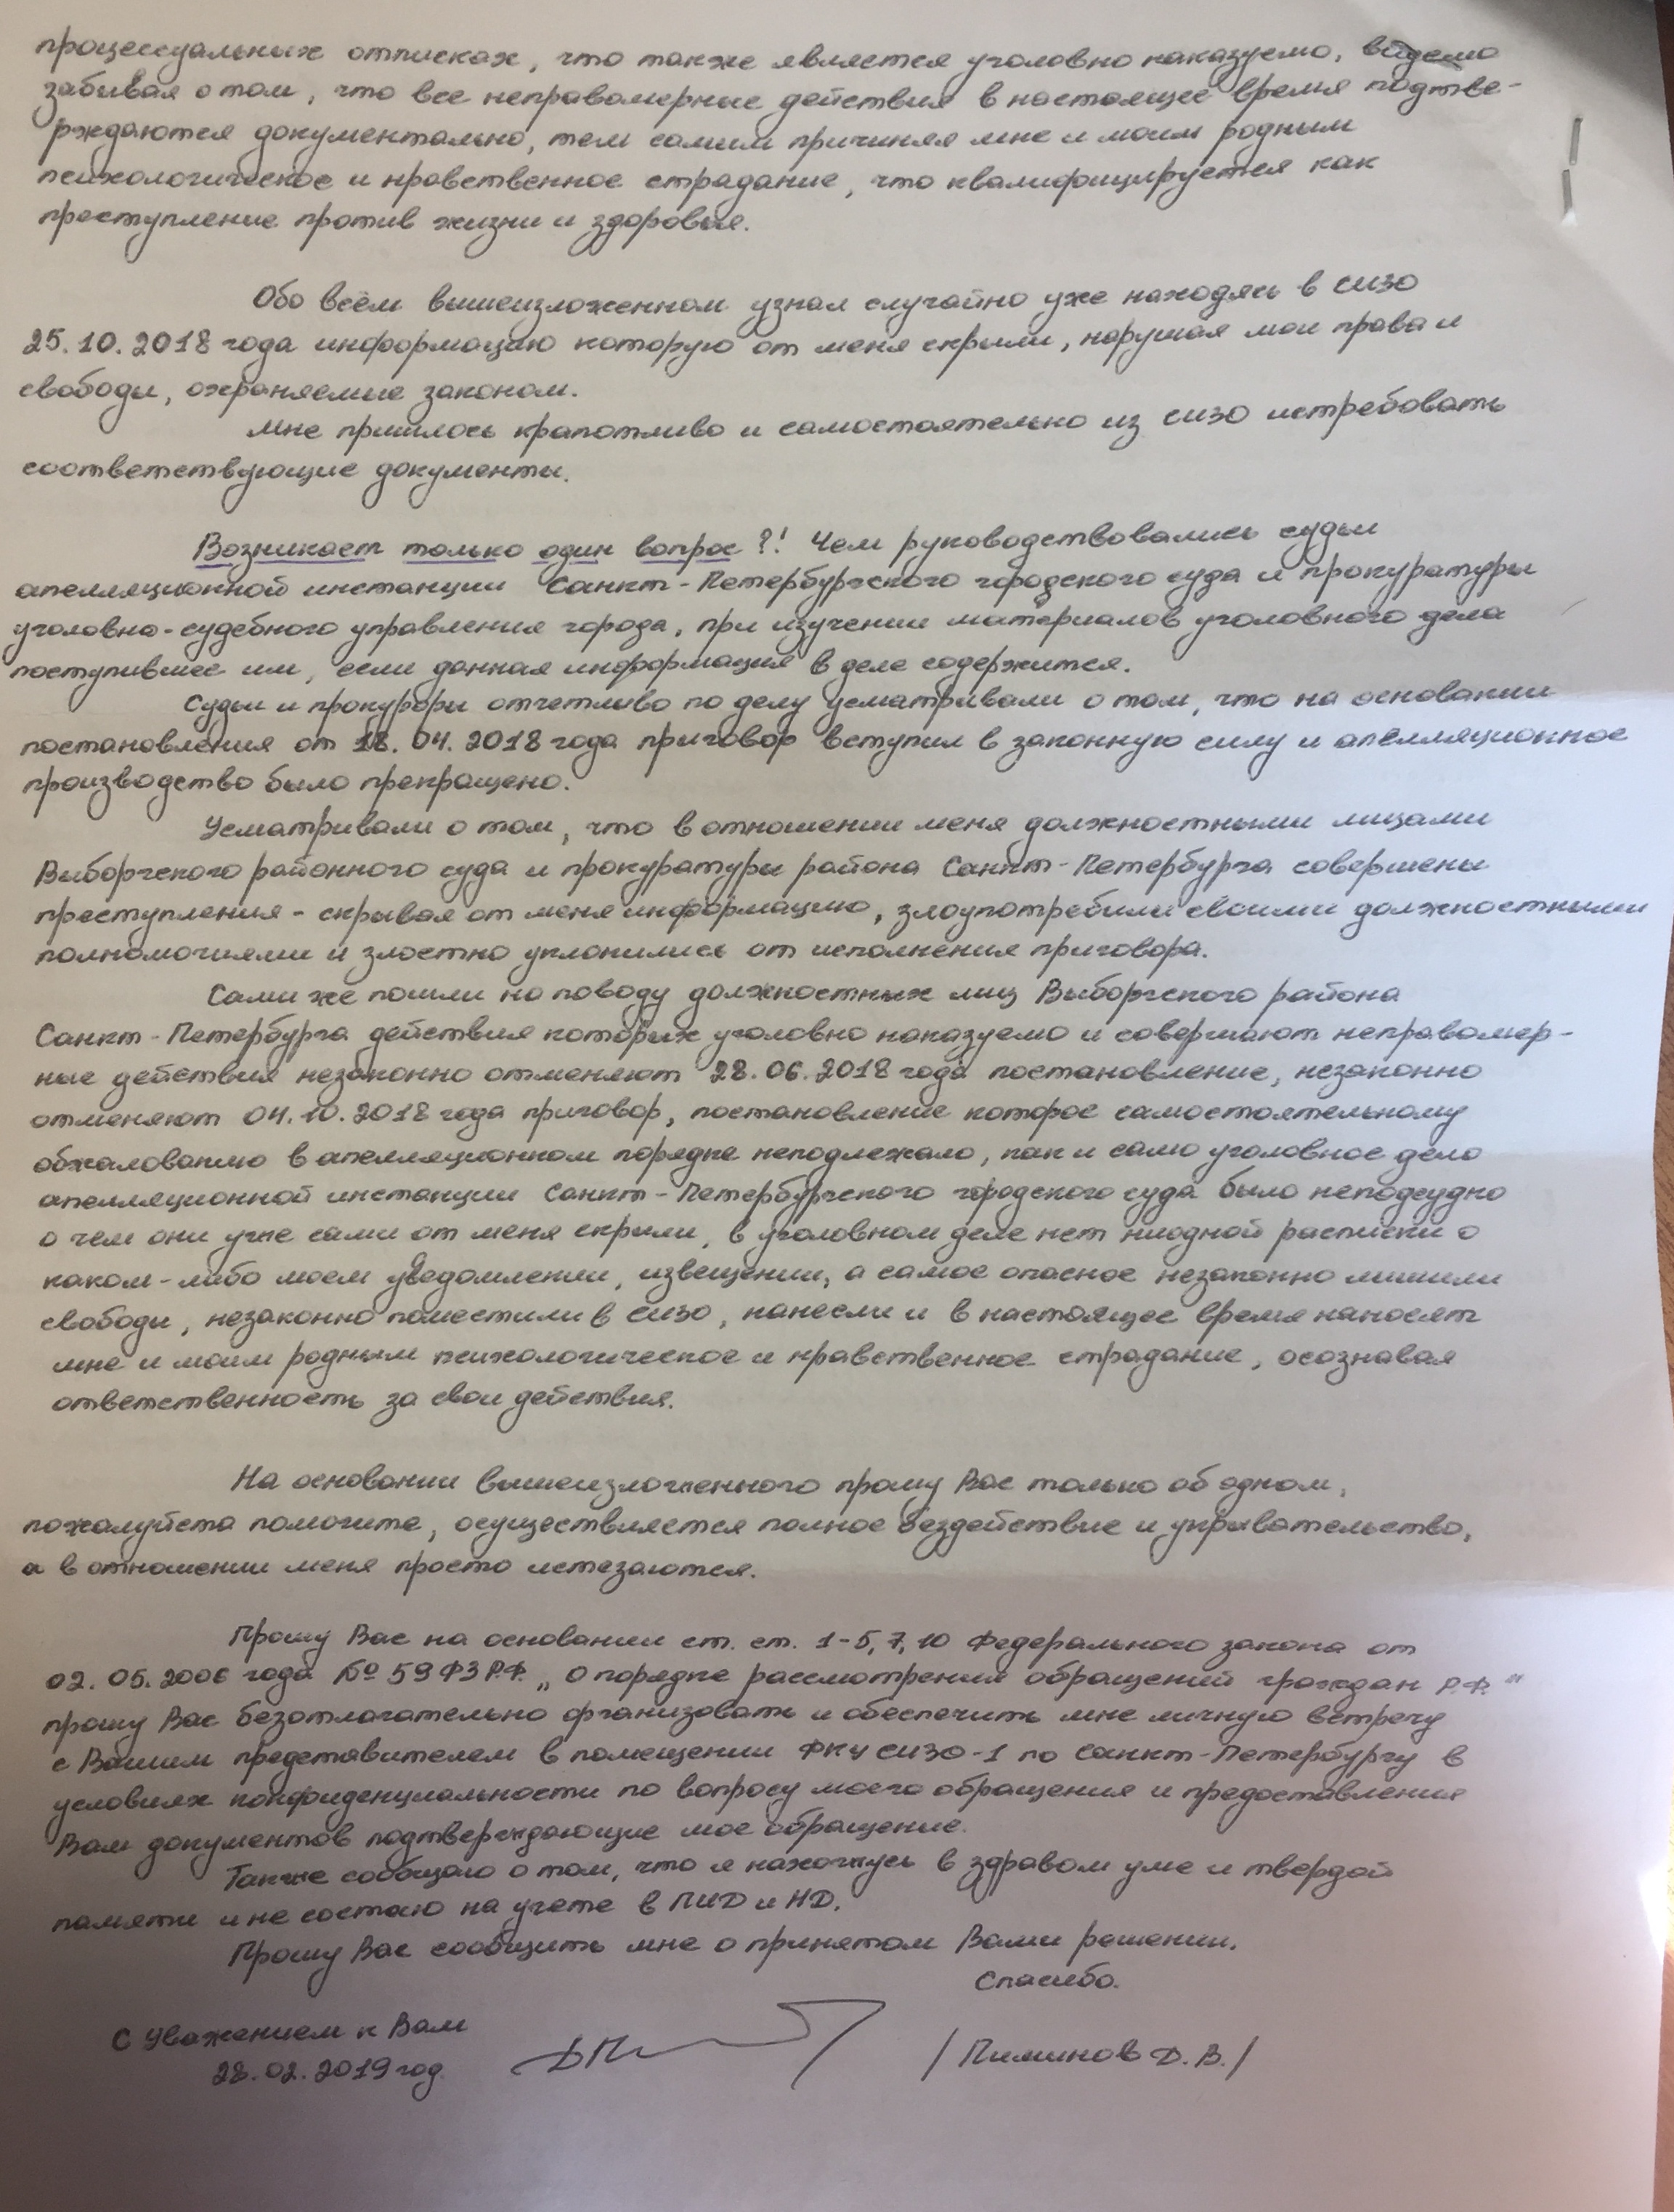 процессуальных отписках, что также является уголовно наказуемо, видемо
забывая о том, что все неправомерные действия в настоящее время подтве-
рждаются документально, тем самым причиняя мне и моим родным
психологическое и нравственное страдание, что квалифицируется как
преступление против жизни и здоровья.
Обо всём вышеизложенном узнал случайно уже находясь в сизо
25.10.2018 года информацию которую от меня скрыли, нарушая мои права и
свободы, охраняемые законом.
Мне пришлось крапотливо и самостоятельно из сизо истребовать
соответствующие документы.
Возникает только один вопрос?! Чем руководствовались судьи
апелляционной инстанции Санкт-Петербургского городского суда и прокуратуры
уголовно-судебного управления города, при изучении материалов уголовного дела
поступившее им, если данная информация в деле содержится.
Судьи и прокуроры отчетливо по делу усматривали о том, что на основании
постановления от 18.04.2018 года приговор вступил в законную силу и апелляционное
производство было прекращено.
Усматривали о том, что в отношении меня должностными лицами
Выборгского районного суда и прокуратуры района Санкт-Петербурга совершены
преступления - скрывая от меня информацию, злоупотребили своими должностными
полномочиями и злостно уклонились от исполнения приговора.
Сами же пошли на поводу должностных лиц Выборгского района
Санкт-Петербурга действия которых уголовно наказуемо и совершают неправомер-
ные действия незаконно отменяют 28.06.2018 года постановление, незаконно
отменяют 04.10.2018 года приговор, постановление которое самостоятельному
обжалованию в апелляционном порядке неподлежало, как и само уголовное дело
апелляционной инстанции Санкт-Петербургского городского суда было неподсудно
о чем они уже сами от меня скрыли, в уголовном деле нет ниодной расписки о
каком-либо моем уведомлении, извещении, а самое опасное незаконно лишили
свободы, незаконно поместили в сизо, нанесли и в настоящее время наносят
мне и моим родным психологическое и нравственное страдание, осознавая
ответственность за свои действия.
На основании вышеизложенного прошу Вас только об одном,
пожалуйста помогите, осуществляется полное бездействие и укрывательство,
а в отношении меня просто истезаются.
Прошу Вас на основании ст. ст. 1-5, 7, 10 Федерального закона от
02.05.2006 года № 59 ФЗ Р.Ф. „О порядке рассмотрения обращений граждан Р.Ф."
прошу Вас безотлагательно организовать и обеспечить мне личную встречу
с Вашим представителем в помещении ФКУ СИЗО-1 по Санкт-Петербургу в
условиях конфиденциальности по вопросу моего обращения и предоставления
Вам документов подтверждающие мое обращение.
Также сообщаю о том, что я нахожусь в здравом уме и твердой
памяти и не состаю на учете в ПНД и НД.
Прошу Вас сообщить мне о принятом Вами решении.
Спасибо.
С Уважением к Вам
28.02.2019 год. /Пиминов Д.В./